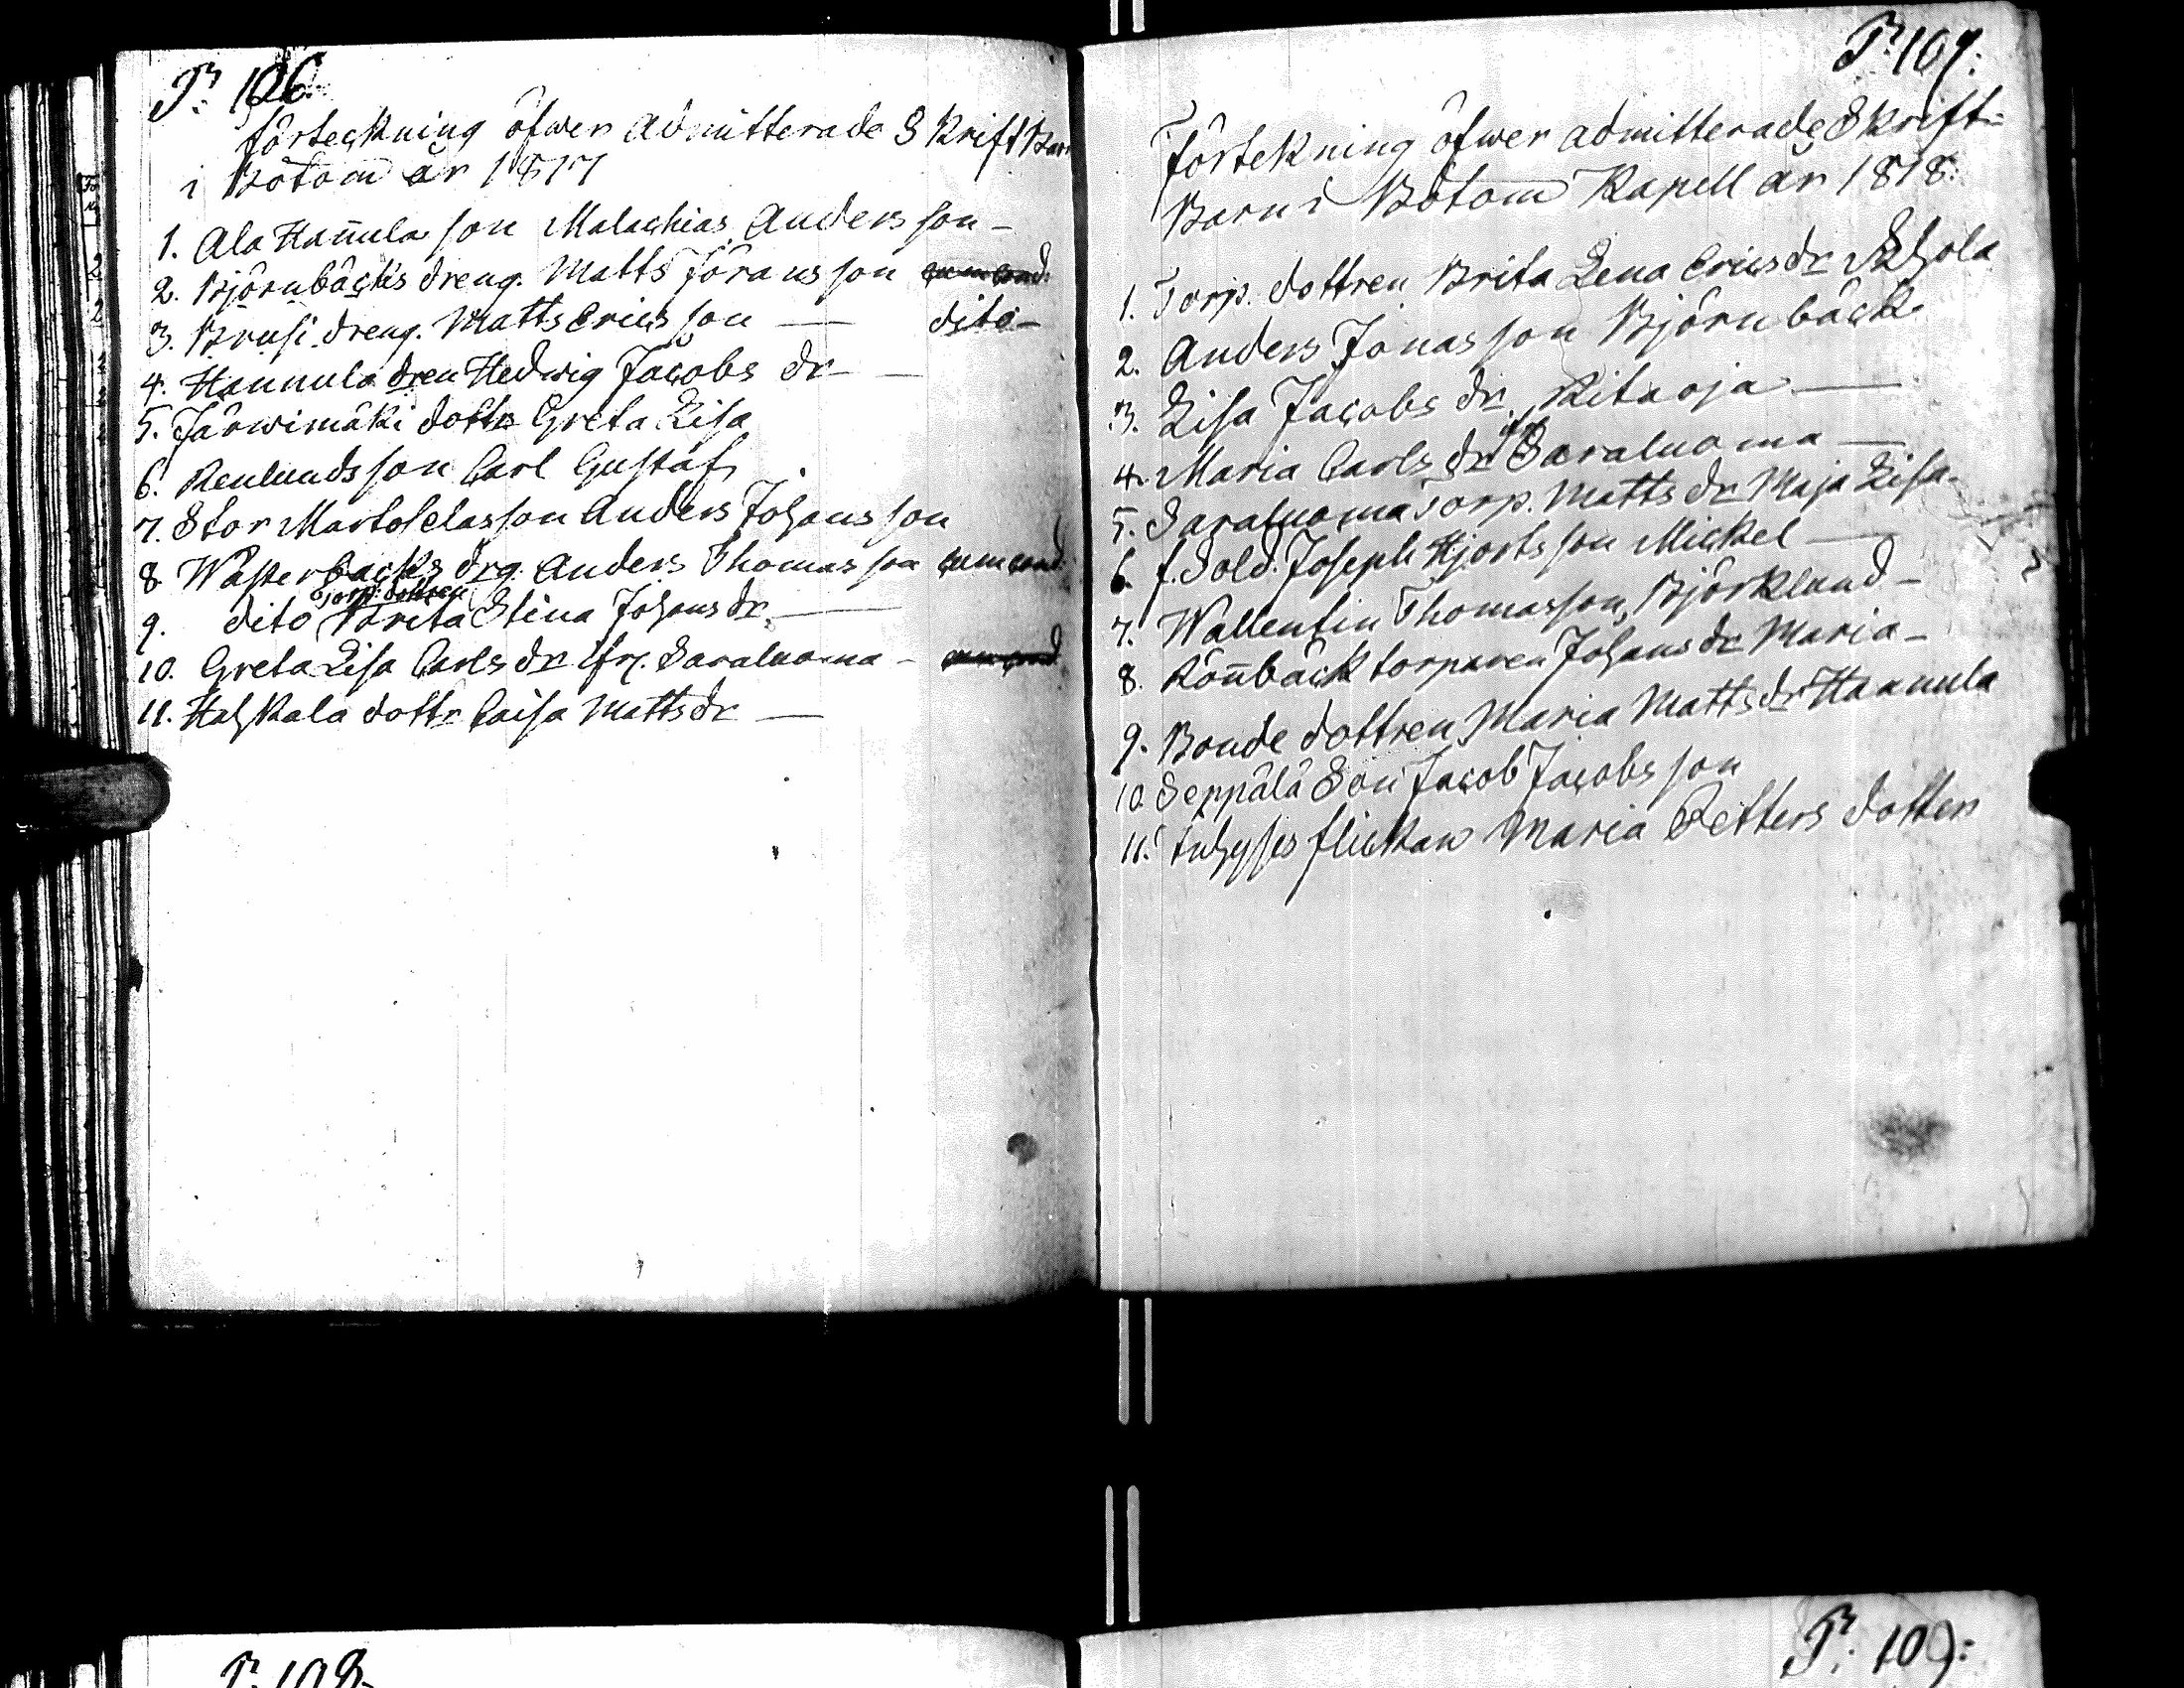 P. 106.
förteckning öfwer Admitterade Skrift Barn
i Bötom år 1817
1. Ala Hannula son Malachias Andersson –
2. Björnbäcks dreng. Matts Göransson cum cond:
3. Brusi dreng. Matts Ericsson — dito –
4. Hannula dren Hedwig Jacobs dr –
5. Järwimäki dottr Greta Lisa
6. Renlunds son Carl Gustaf
7. Stor Martola son Anders Johansson
8. Wästerbacks drg. Anders Thomasson cum cond:
torp: dottren
9. dito Brita Stina Johans dr. —
10. Greta Lisa Carls dr ifr. Saraluoma – cum cond.
11. Hahkala dottr Caisa Matts dr —
P. 107.
Förtekning öfwer admitterade Skrift=
Barn i Bötom Kapell år 1818.
1. Torp. dottren Brita Lena Erics dr
2. Anders Jonasson Björnbäck
3. Lisa Jacobs dr. Ritaoja —
4. Maria Carls dr ifr. Saraluoma —
5. Saraluoma Torp. Matts dr Maja Lisa –
6. f. Sold. Joseph Hjorts son Mickel —
7. Wallentin Thomasson, Björklund –
8. Rönnback torparen Johans dr Maria –
9. Bonde dottren Maria Matts dr Hannula
10. Seppälä Son Jacob Jacobsson
11. Inhyses flickan Maria Petters dotter
P. 108.
P. 109: